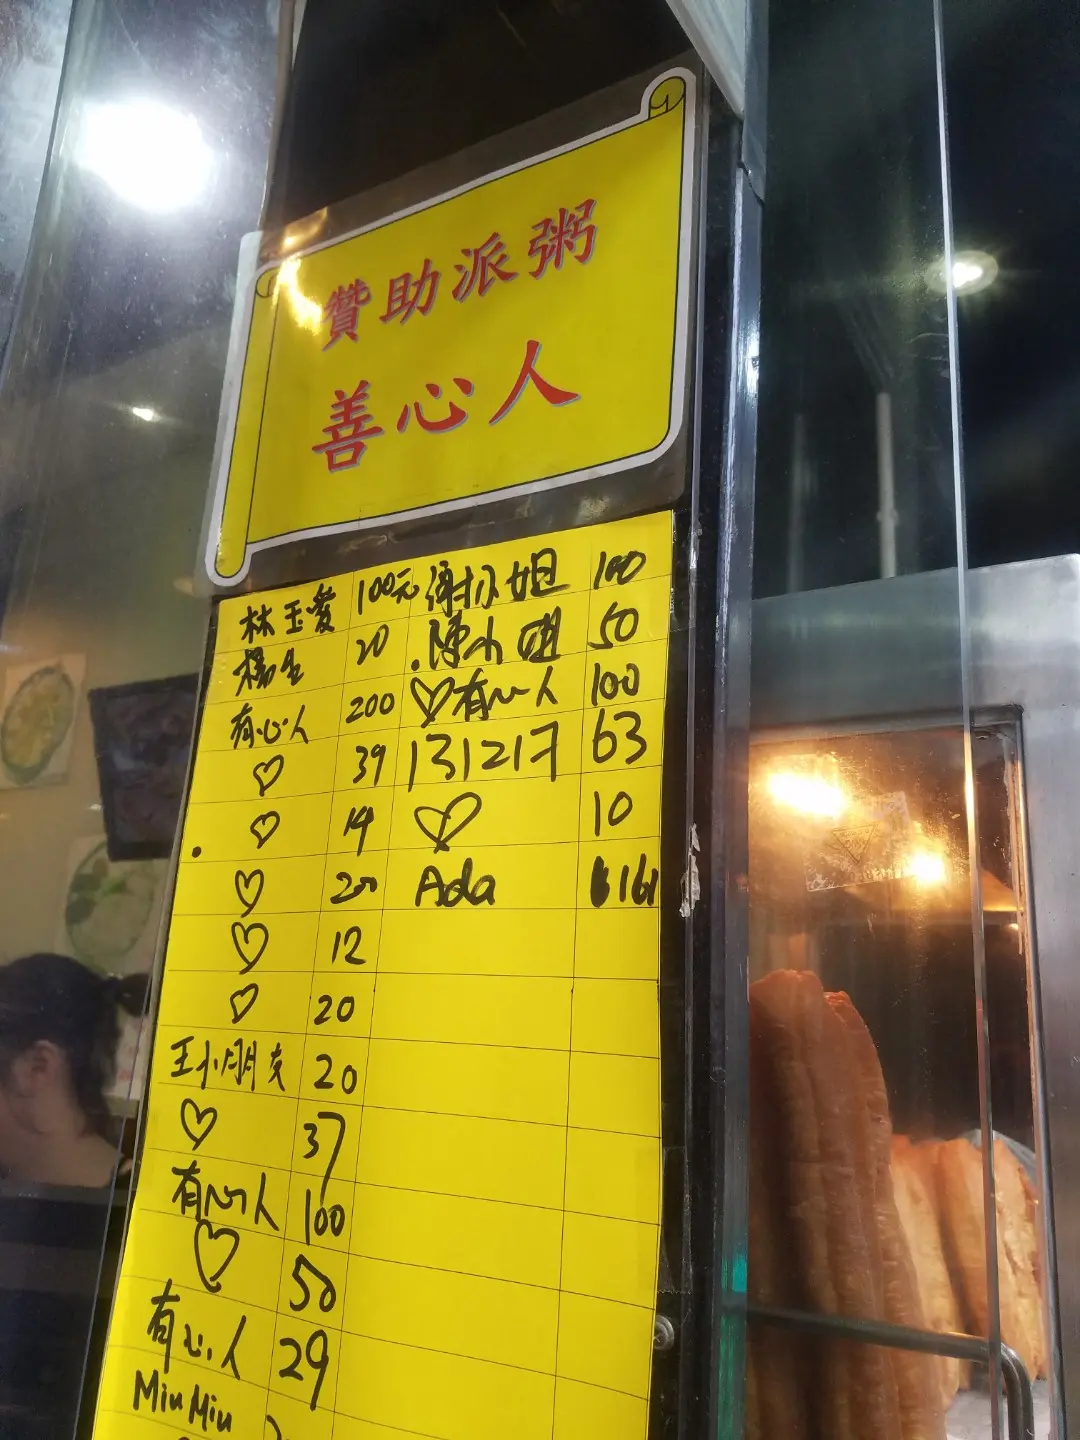 贊助派粥
善心人
林玉愛 100元
楊生 20
有心人 200
♡ 39
♡ 14
♡ 200
♡ 12
♡ 20
王小朋友 20
♡ 37
有心人 100
♡ 50
有心人 29
Miu Miu
小姐 100
陳小姐 50
♡有心人 100
131217 63
♡ 10
Ada